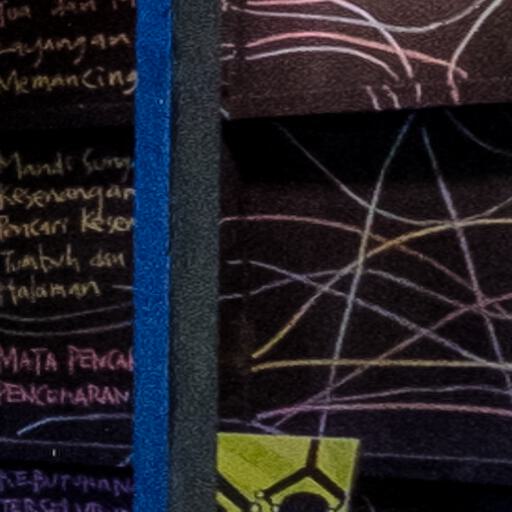 Layangan
Memancing
Mandi Sung
Kesenangan
Pencari Kesen
Tumbuh dan
Halaman
MATA PENCA
PENCEMARAN
KEBUTUHAN